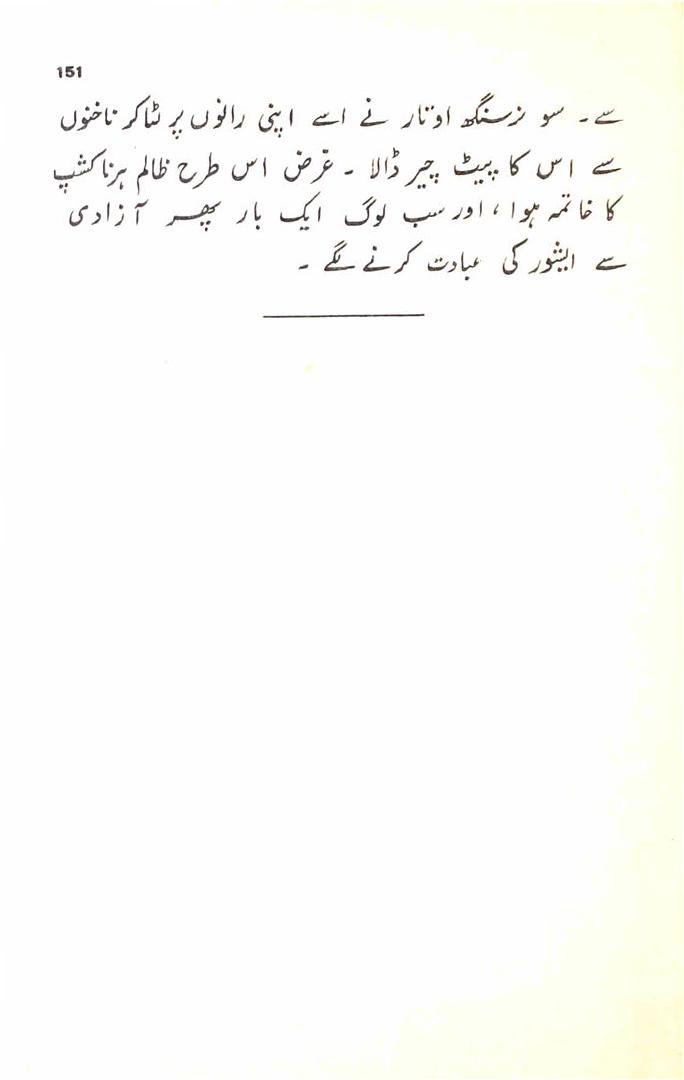 151
سے ۔ سو نرسنگھ اوتار نے اسے اپنی رانوں پر لٹا کر ناخنوں
سے اس کا پیٹ چیر ڈالا ۔ غرض اس طرح ظالم ہرناکشپ
کا خاتمہ ہوا ، اور سب لوگ ایک بار پھر آزادی
سے ایشور کی عبادت کرنے لگے ۔